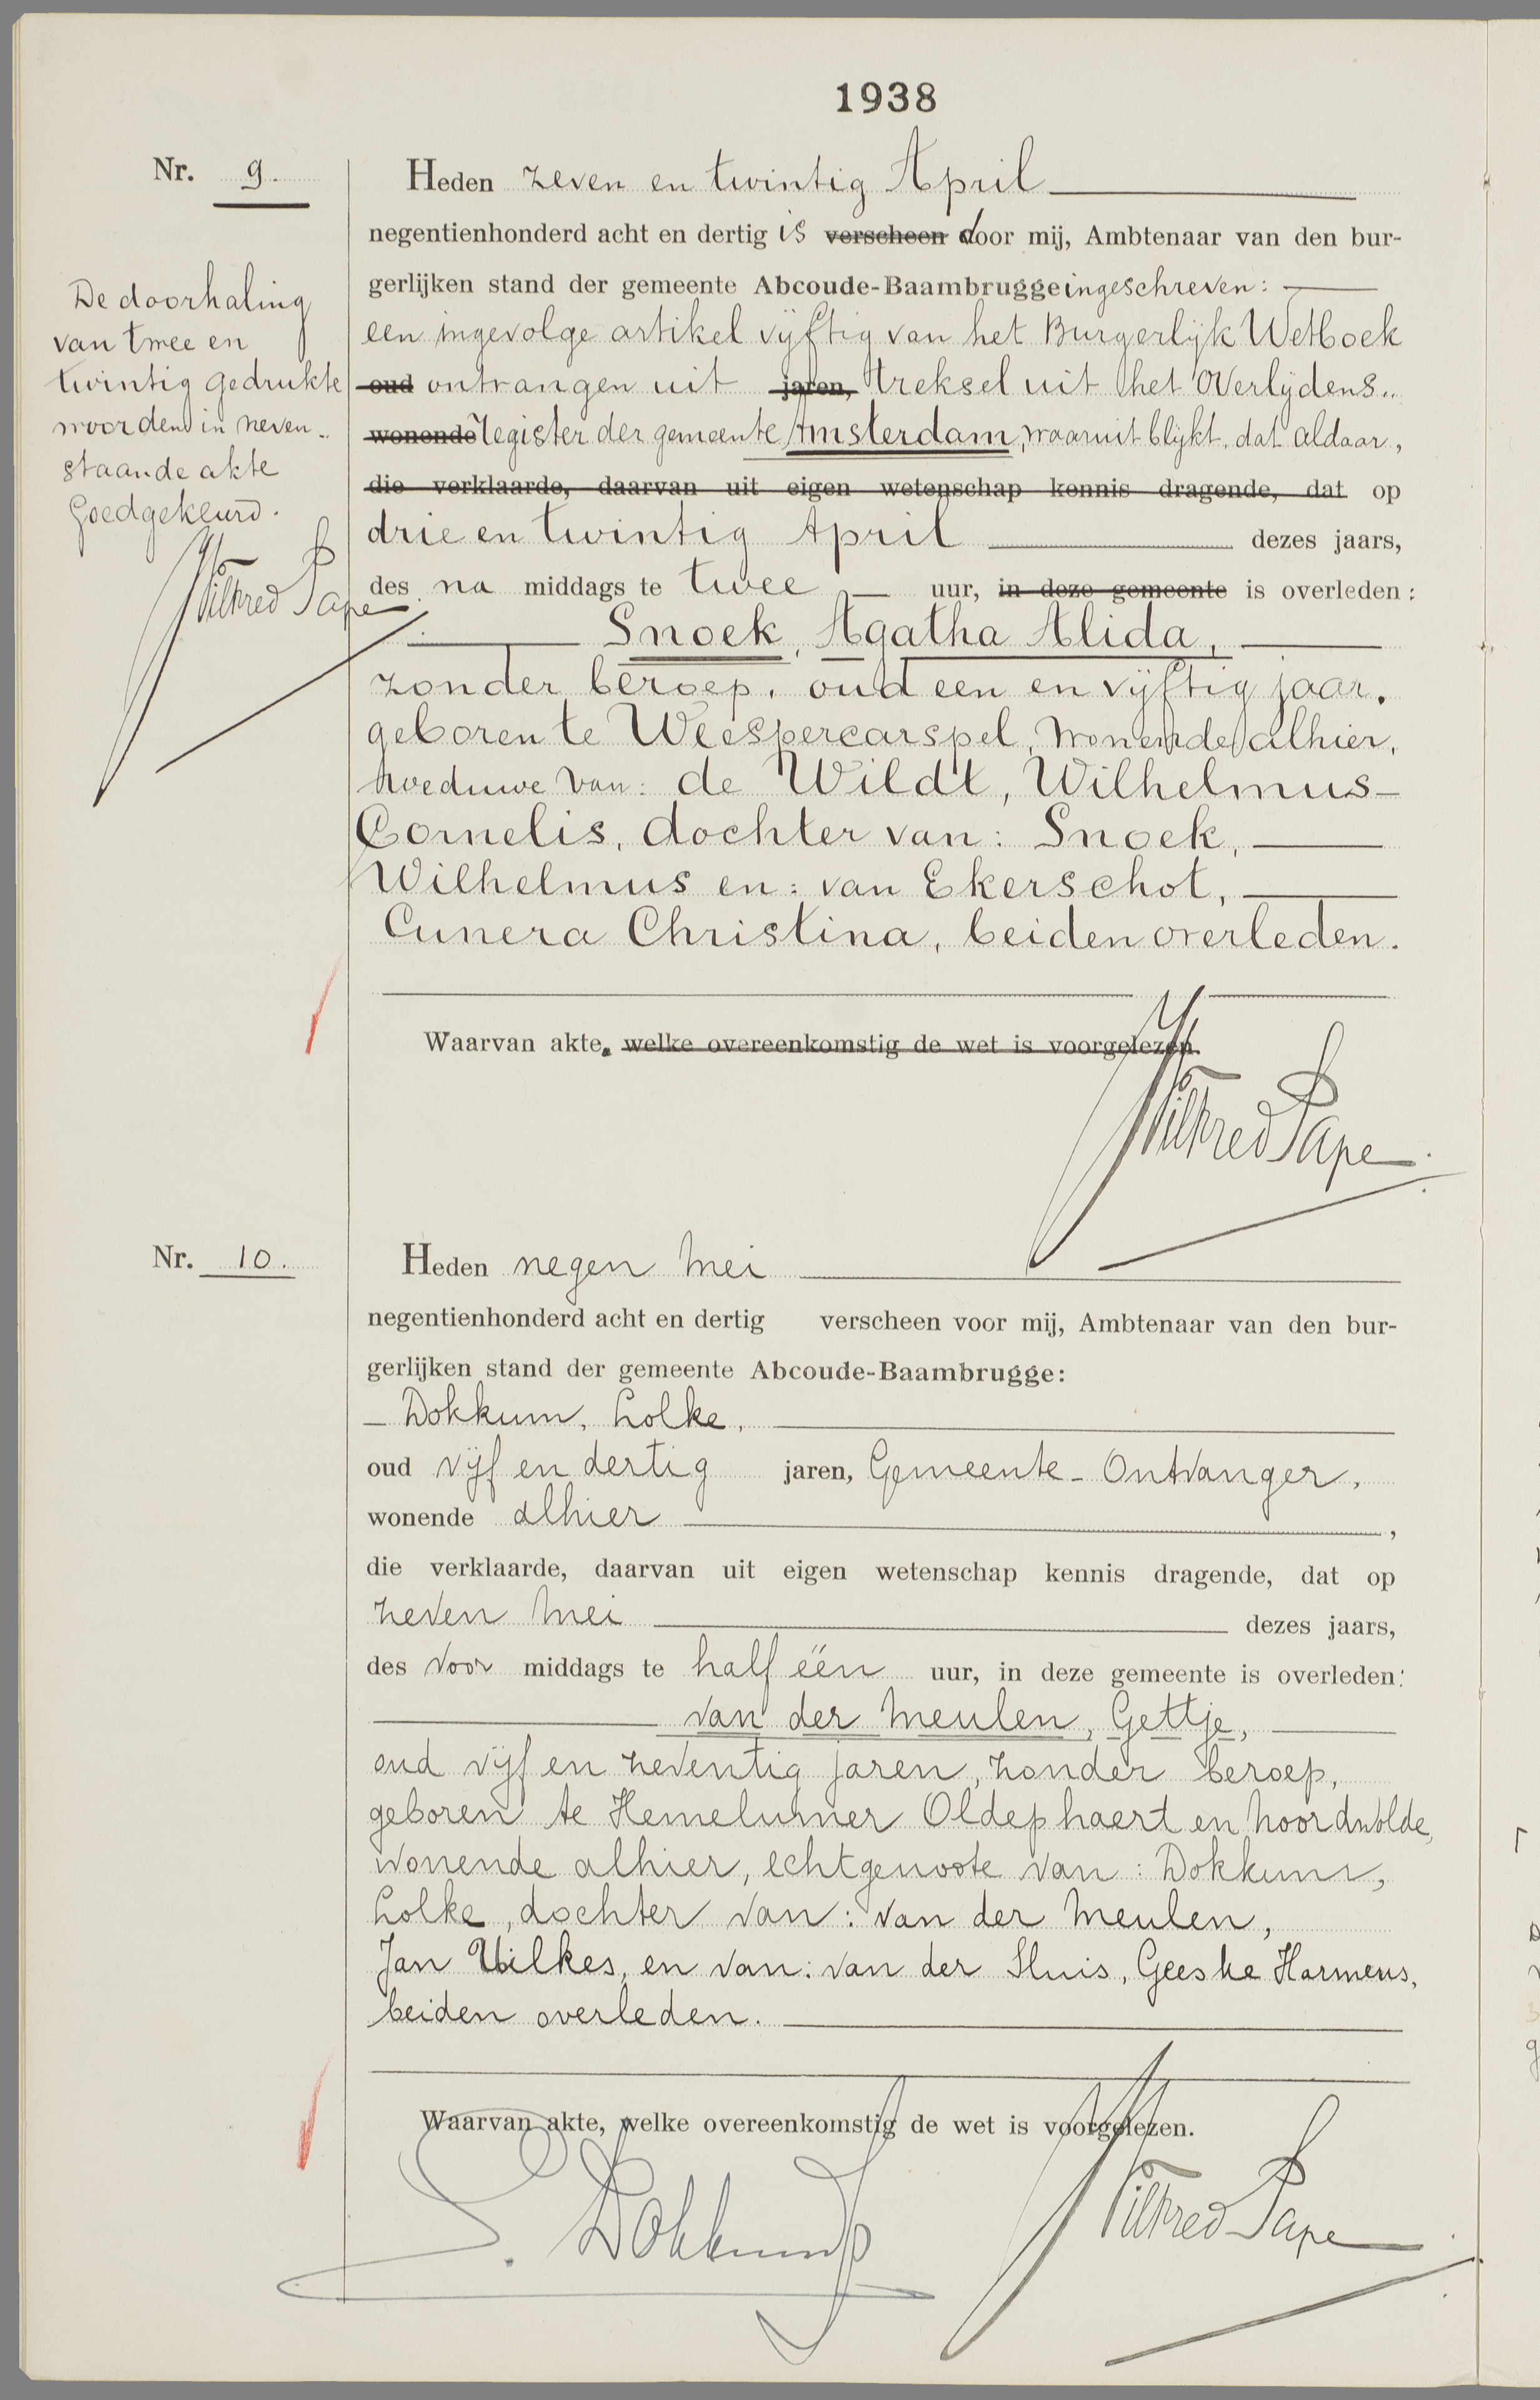 1938
Nr. 9.
Heden zeven en twintig April
negentienhonderd acht en dertig is verscheen door mij, Ambtenaar van den bur-
gerlijken stand der gemeente Abcoude-Baambrugge ingeschreven:
een ingevolge artikel vijftig van het Burgerlijk Wetboek
oud ontvangen uit jaren, treksel uit het Overlijdens..
wonende register der gemeente Amsterdam, waaruit blijkt, dat aldaar,
die verklaarde, daarvan uit eigen wetenschap kennis dragende, dat op
drie en twintig April dezes jaars,
des na middags te twee uur, in deze gemeente is overleden:
Snoek, Agatha Alida,
zonder beroep, oud een en vijftig jaar,
geboren te Weespercarspel, wonende alhier,
weduwe van: de Wildt, Wilhelmus-
Cornelis, dochter van: Snoek,
Wilhelmus en: van Ekerschot,
Cunera Christina, beiden overleden.
Waarvan akte. welke overeenkomstig de wet is voorgelezen.
Wilfred Pape
De doorhaling
van twee en
twintig gedrukte
woorden in neven..
staande akte
Goedgekeurd.
Wilfred Pape
Nr. 10.
Heden negen Mei
negentienhonderd acht en dertig verscheen voor mij, Ambtenaar van den bur-
gerlijken stand der gemeente Abcoude-Baambrugge:
Dokkum, Lolke,
oud vijf en dertig jaren, Gemeente-Ontvanger,
wonende alhier,
die verklaarde, daarvan uit eigen wetenschap kennis dragende, dat op
zeven Mei dezes jaars,
des voor middags te half één uur, in deze gemeente is overleden:
van der Meulen, Gettje,
oud vijf en zeventig jaren, zonder beroep,
geboren te Hemelumer Oldephaert en Noordwolde,
wonende alhier, echtgenoote van: Dokkum,
Lolke, dochter van: van der Meulen,
Jan Uilkes, en van: van der Sluis, Geeske Harmens,
beiden overleden.
Waarvan akte, welke overeenkomstig de wet is voorgelezen.
L. Dokkum
Wilfred Pape